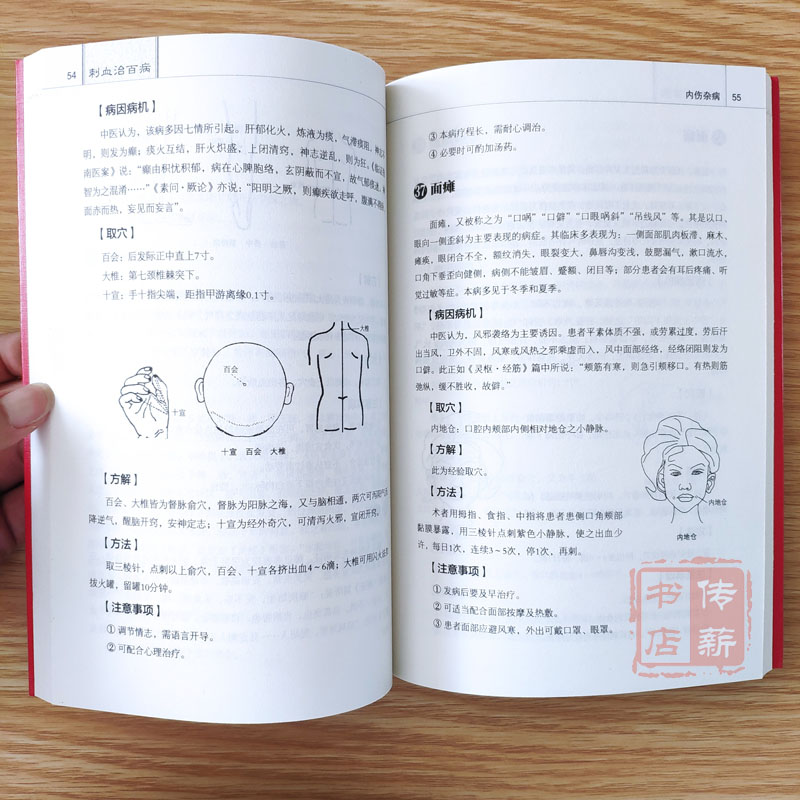 54 刺血治百病
【病因病机】
中医认为，该病多因七情所引起。肝郁化火，炼液为痰，气滞痰阻，神
明，则发为癫；痰火互结，肝火炽盛，上闭清窍，神志逆乱，则为狂。《临证
南医案》说：“癫由积忧积郁，病在心脾胞络，玄阴蔽而不宣，故气郁痰迷，神
智为之混淆……”《素问·厥论》亦说：“阳明之厥，则癫疾欲走呼，腹满不
面赤而热，妄见而妄言”。
【取穴】
百会：后发际正中直上7寸。
大椎：第七颈椎棘突下。
十宣：手十指尖端，距指甲游离缘0.1寸。
大椎
百会
十宣
十宣 百会 大椎
【方解】
百会、大椎皆为督脉俞穴，督脉为阳脉之海，又与脑相通，两穴可泻阳气
降逆气，醒脑开窍，安神定志；十宣为经外奇穴，可清泻火邪，宣闭开窍。
【方法】
取三棱针，点刺以上俞穴，百会、十宣各挤出血4～6滴；大椎可用闪火法
拔火罐，留罐10分钟。
【注意事项】
① 调节情志，需语言开导。
② 可配合心理治疗。
内伤杂病 55
③ 本病疗程长，需耐心调治。
④ 必要时可酌加汤药。
37 面瘫
面瘫，又被称之为“口㖞”“口僻”“口眼㖞斜”“吊线风”等。其是以口、
眼向一侧歪斜为主要表现的病症。其临床多表现为：一侧面部肌肉板滞、麻木、
瘫痪，眼闭合不全，额纹消失，眼裂变大，鼻唇沟变浅，鼓腮漏气，漱口流水，
口角下垂歪向健侧，病侧不能皱眉、蹙额、闭目等；部分患者会有耳后疼痛、听
觉过敏等症。本病多见于冬季和夏季。
【病因病机】
中医认为，风邪袭络为主要诱因。患者平素体质不强，或劳累过度，劳后汗
出当风，卫外不固，风寒或风热之邪乘虚而入，风中面部经络，经络闭阻则发为
口僻。此正如《灵枢·经筋》篇中所说：“颊筋有寒，则急引颊移口。有热则筋
弛纵，缓不胜收，故僻。”
【取穴】
内地仓：口腔内颊部内侧相对地仓之小静脉。
【方解】
此为经验取穴。
【方法】
术者用拇指、食指、中指将患者患侧口角颊部
黏膜暴露，用三棱针点刺紫色小静脉，使之出血少
许，每日1次，连续3～5次，停1次，再刺。
内地仓
内地仓
【注意事项】
① 发病后要及早治疗。
② 可适当配合面部按摩及热敷。
③ 患者面部应避风寒，外出可戴口罩、眼罩。
传薪
书店